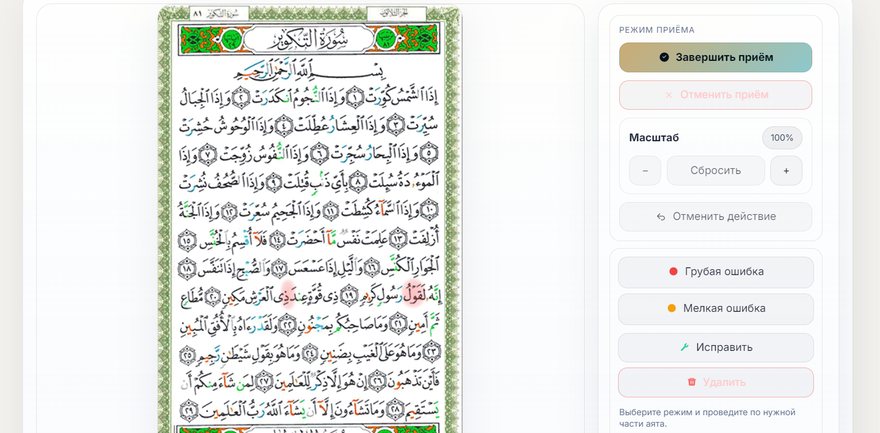 الجزء الثلاثون
سورة التكوير ٨١
سُورَةُ التَّكْوِيرِ
بِسْمِ اللَّهِ الرَّحْمَٰنِ الرَّحِيمِ
إِذَا الشَّمْسُ كُوِّرَتْ ١ وَإِذَا النُّجُومُ انكَدَرَتْ ٢ وَإِذَا الْجِبَالُ
سُيِّرَتْ ٣ وَإِذَا الْعِشَارُ عُطِّلَتْ ٤ وَإِذَا الْوُحُوشُ حُشِرَتْ
٥ وَإِذَا الْبِحَارُ سُجِّرَتْ ٦ وَإِذَا النُّفُوسُ زُوِّجَتْ ٧ وَإِذَا
الْمَوْءُدَةُ سُئِلَتْ ٨ بِأَيِّ ذَنبٍ قُتِلَتْ ٩ وَإِذَا الصُّحُفُ نُشِرَتْ
١٠ وَإِذَا السَّمَاءُ كُشِطَتْ ١١ وَإِذَا الْجَحِيمُ سُعِّرَتْ ١٢ وَإِذَا الْجَنَّةُ
أُزْلِفَتْ ١٣ عَلِمَتْ نَفْسٌ مَّا أَحْضَرَتْ ١٤ فَلَا أُقْسِمُ بِالْخُنَّسِ ١٥
الْجَوَارِ الْكُنَّسِ ١٦ وَاللَّيْلِ إِذَا عَسْعَسَ ١٧ وَالصُّبْحِ إِذَا تَنَفَّسَ ١٨
إِنَّهُ لَقَوْلُ رَسُولٍ كَرِيمٍ ١٩ ذِي قُوَّةٍ عِندَ ذِي الْعَرْشِ مَكِينٍ ٢٠ مُّطَاعٍ
ثَمَّ أَمِينٍ ٢١ وَمَا صَاحِبُكُم بِمَجْنُونٍ ٢٢ وَلَقَدْ رَآهُ بِالْأُفُقِ الْمُبِينِ
٢٣ وَمَا هُوَ عَلَى الْغَيْبِ بِضَنِينٍ ٢٤ وَمَا هُوَ بِقَوْلِ شَيْطَانٍ رَّجِيمٍ ٢٥
فَأَيْنَ تَذْهَبُونَ ٢٦ إِنْ هُوَ إِلَّا ذِكْرٌ لِّلْعَالَمِينَ ٢٧ لِمَن شَاءَ مِنكُمْ أَن
يَسْتَقِيمَ ٢٨ وَمَا تَشَاءُونَ إِلَّا أَن يَشَاءَ اللَّهُ رَبُّ الْعَالَمِينَ ٢٩
РЕЖИМ ПРИЁМА
Завершить приём
Отменить приём
Масштаб 100%
− Сбросить +
Отменить действие
Грубая ошибка
Мелкая ошибка
Исправить
Удалить
Выберите режим и проведите по нужной
части аята.